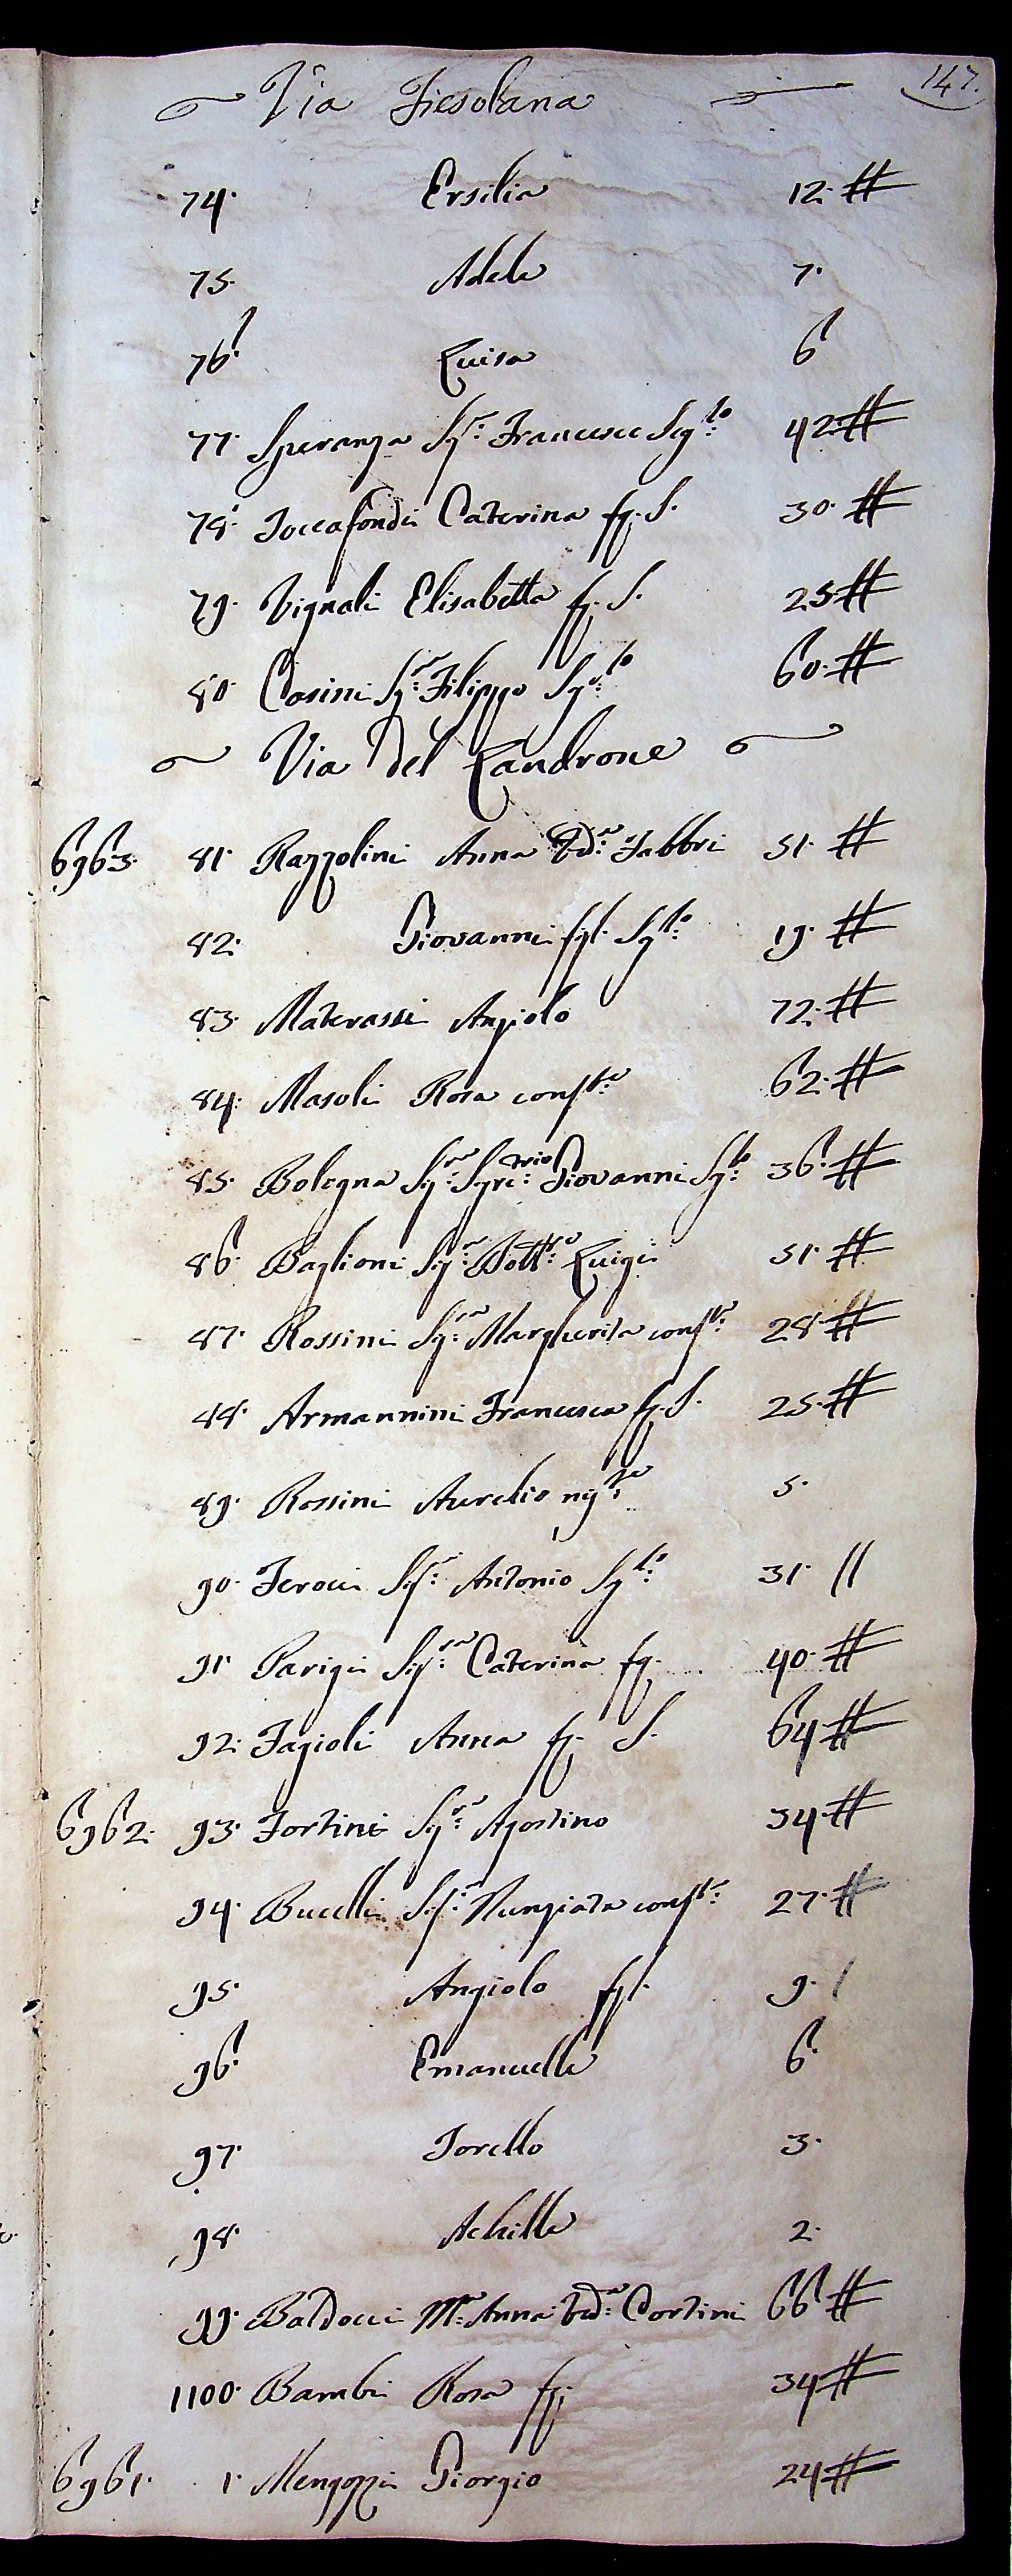 Via Fiesolana 147.
74. Ersilia 12. #
75. Adele 7.
76. Luisa 6
77. Speranza Sig.r Francesco Sig.to 42. #
78. Toccafondi Caterina fg. S. 30. #
79. Vignali Elisabetta fg. S. 25 #
80. Casini Sig.r Filippo Sig.to 60. #
Via del Landrone
6963. 81. Razzolini Anna Vd.a Fabbri 51. #
82. Giovanni figl. Sig.to 19. #
83. Materassi Angiolo 72. #
84. Masoli Rosa conf.ta 62. #
85. Bologna Sig.r Giovanni Sig.to 36. #
86. Baglioni Sig.r Dott.re Luigi 51. #
87. Rossini Sig.ra Margherita conf.ta 28. #
88. Armannini Francesca fg. S. 25. #
89. Rossini Aurelio nip.te 5.
90. Feroci Sig.r Antonio Sig.to 31. //
91. Parigi Sig.ra Caterina fg. 40. #
92. Fagioli Anna fg. S. 64 #
6962. 93. Fortini Sig.r Agostino 34. #
94. Bucelli Sig.ra Nunziata conf.ta 27. #
95. Angiolo figl. 9. /
96. Emanuelle 6.
97. Torello 3.
98. Achille 2.
99. Baldocci M.a Anna Ved.a Cortini 66 #
1100. Bambi Rosa fg. 34 #
6961. 1. Mengozzi Giorgio 24 #